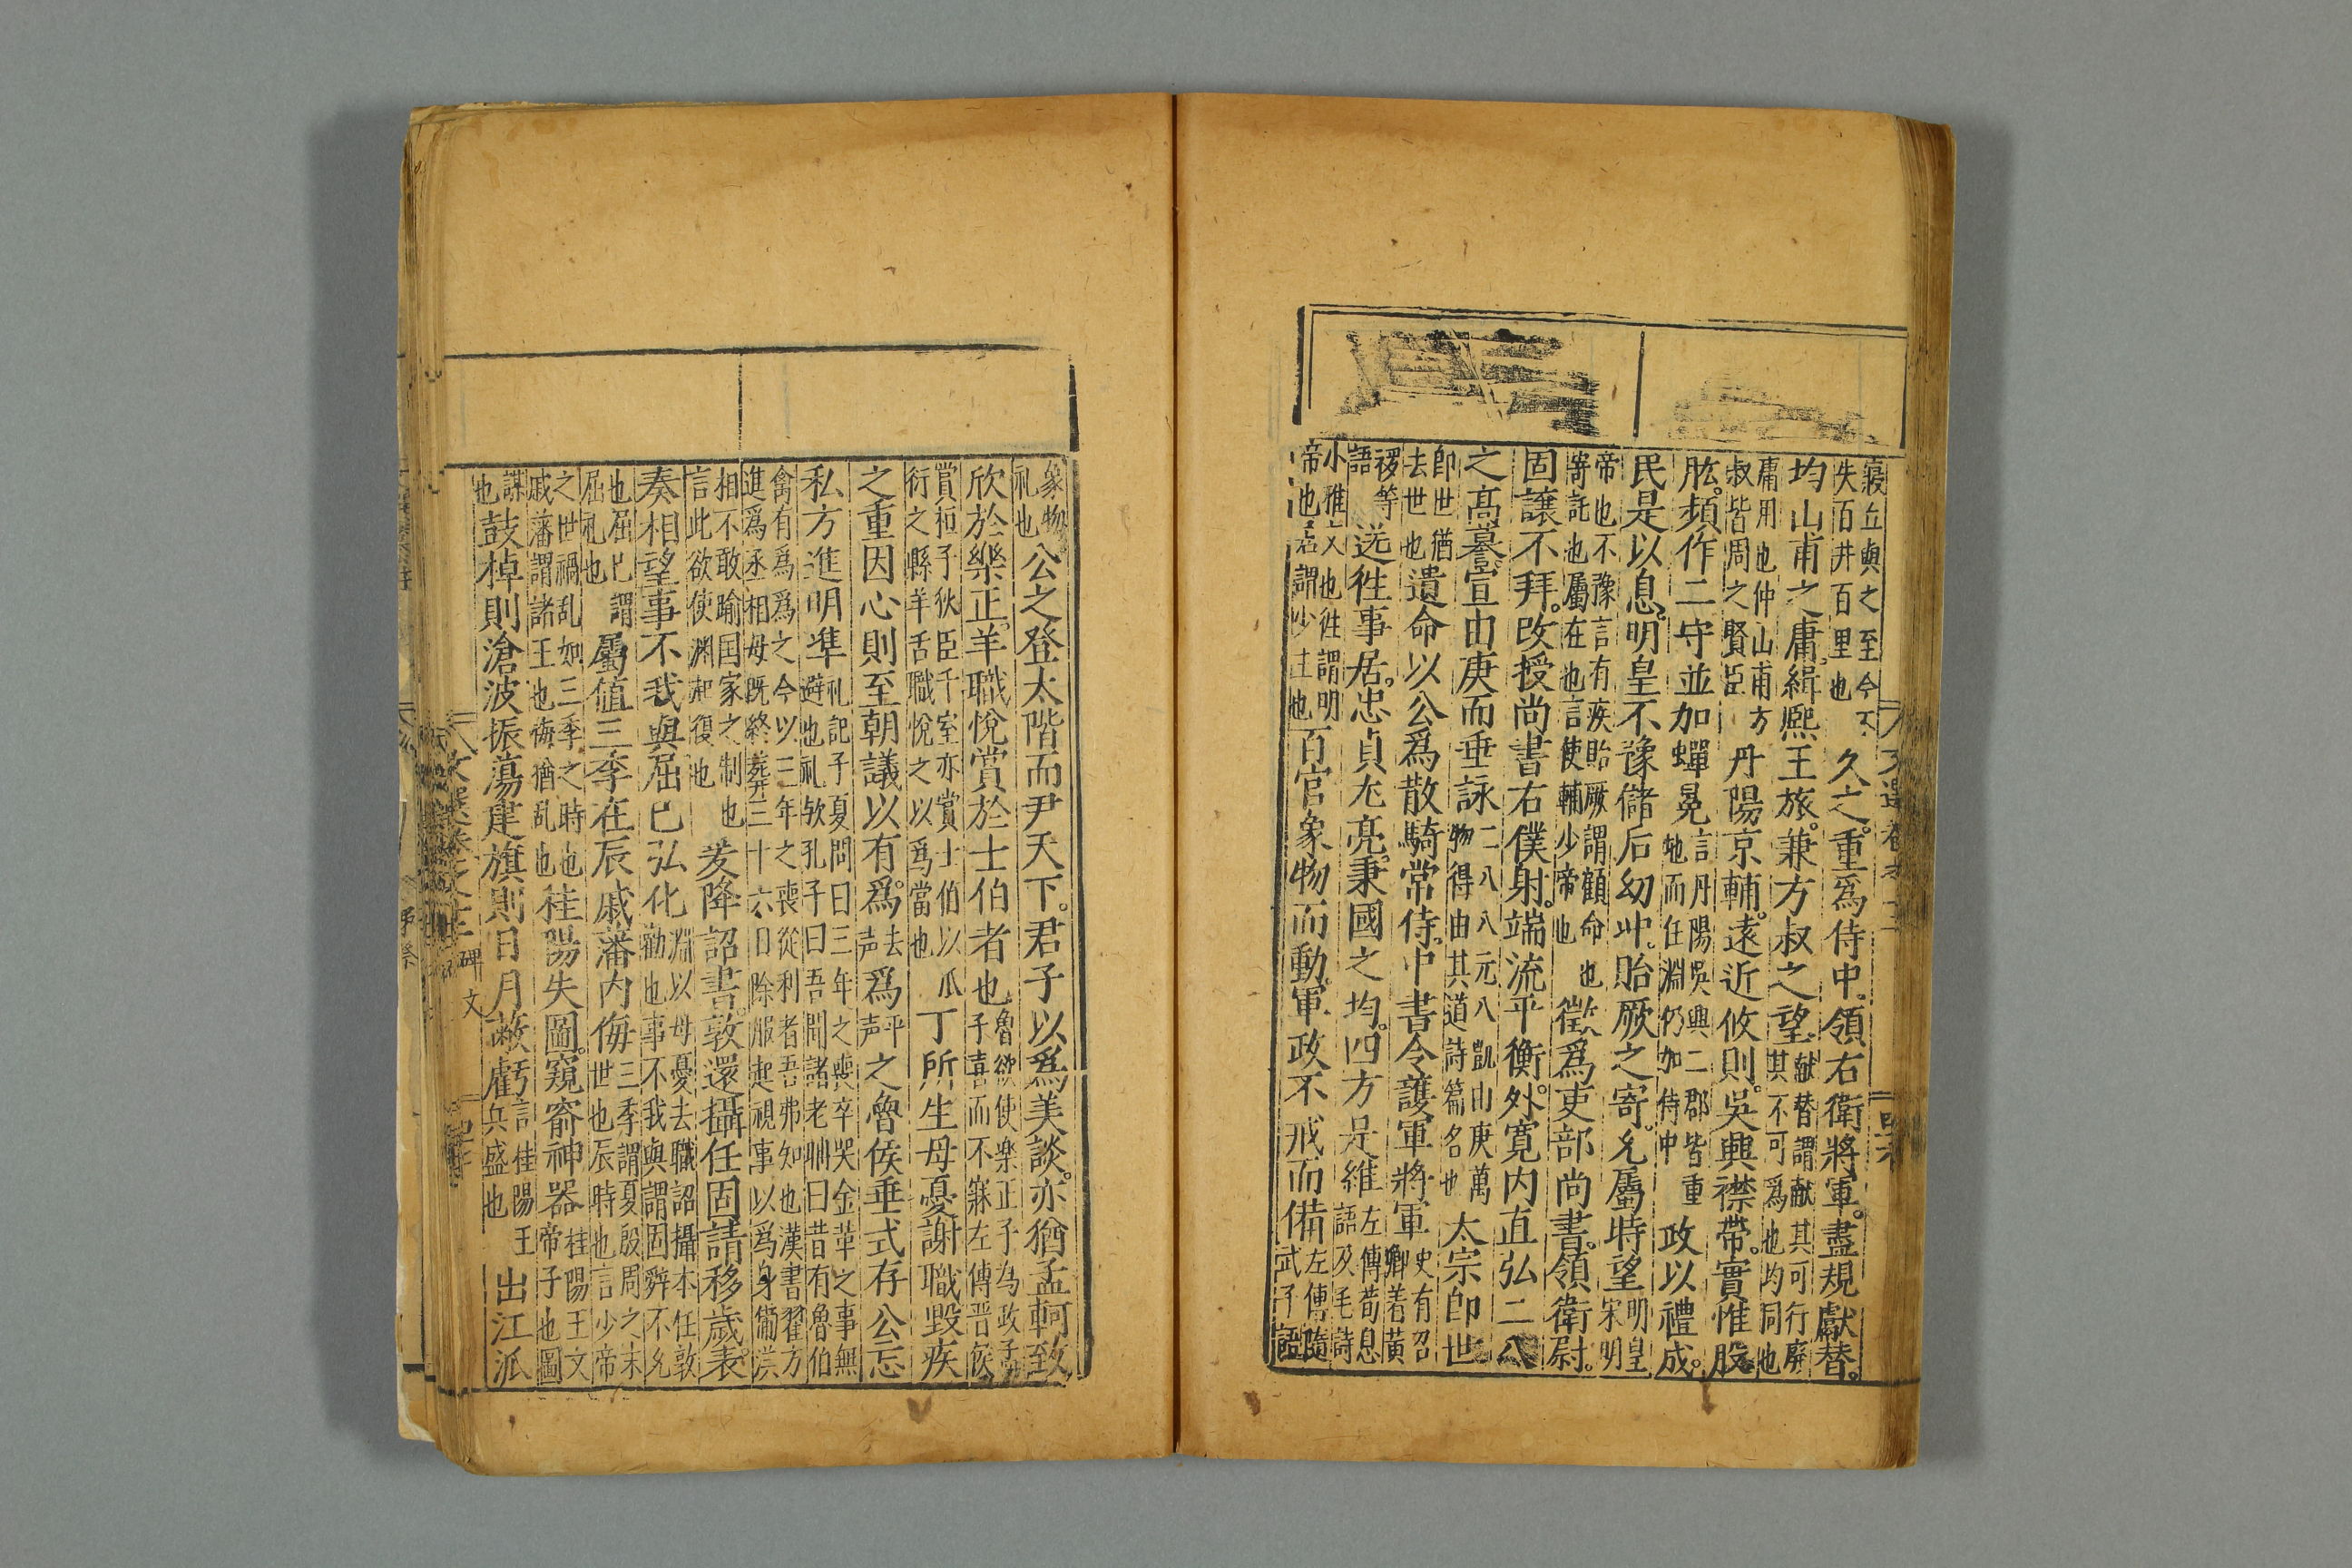 寢丘與之至今不
失百井百里也
久之重爲侍中領右衛將軍盡規獻替
均山甫之庸緝熙王旅兼方叔之望
献替謂献其可行廢
其不可爲也均同也
庸用也仲山甫方
叔皆周之賢臣
丹陽京輔遠近攸則吳興襟帶實惟股
肱頻作二守並加蟬冕
言丹陽吳興二郡皆重
地而任淵仍加侍中
政以禮成
民是以息明皇不豫儲后幼冲貽厥之寄允屬時望
明皇
宋明
帝也不豫言有疾貽厥謂顧命也
寄託也屬在也言使輔少帝也
徵爲吏部尚書領衛尉
固讓不拜改授尚書右僕射端流平衡外寬内直弘二八
之高謩宣由庚而垂詠
二八八元八凱由庚萬
物得由其道詩篇名也
太宗即世
即世猶
去世也
遺命以公爲散騎常侍中書令護軍將軍
史有召
卿着黄
禝等
語
送徃事居忠貞允亮秉國之均四方是維
左傳荀息
語及毛詩
小雅文也徃謂明
帝也居謂少主也
百官象物而動軍政不戒而備
左傳隨
武子語
象物
礼也
公之登太階而尹天下君子以爲美談亦猶孟軻致
欣於樂正羊職悅賞於士伯者也
魯欲使樂正子為政孟子
子喜而不寐左傳晋侯
賞桓子狄臣千室亦賞士伯以瓜
衍之縣羊舌職悅之以爲當也
丁所生母憂謝職毀疾
之重因心則至朝議以有爲
去
声
爲
平
声
之魯侯垂式存公忘
私方進明準
礼記子夏問曰三年之喪卒哭金革之事無
避也礼欤孔子曰吾聞諸老聃曰昔有魯伯
禽有爲爲之今以三年之喪從利者吾弗知也漢書翟方
進爲丞相母既終葬三十六日除服起視事以爲身備漢
相不敢踰国家之制也
言此欲使渊起復也
爰降詔書敦還攝任固請移歲表
奏相望事不我與屈已弘化
淵以母憂去職詔攝本任敦
勸也事不我與謂固辤不允
也屈已謂
屈礼也
屬值三季在辰戚蕃内侮
三季謂夏殷周之末
世也辰時也言少帝
之世禍乱如三季之時也
戚藩謂諸王也侮猶乱也
桂陽失圖窺窬神器
桂陽王文
帝子也圖
謀
也
鼓棹則滄波振蕩建旗則日月蔽虧
言桂陽王
兵盛也
出江派